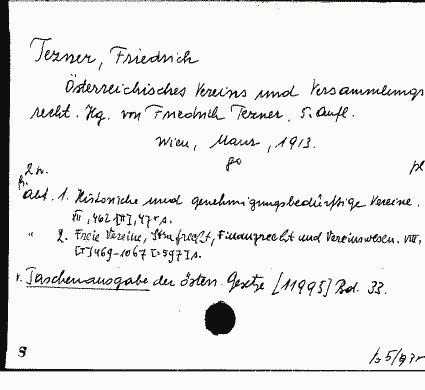 Tezner, Friedrich
Österreichisches Vereins und Versammlungs
recht. Hg. von Friedrich Tezner. 5. Aufl.
Wien, Manz, 1913.
8o
2 w.
Abt. 1. Historische und genehmigungsbedürftige Vereine.
VII, 462 [II], 47* S.
" 2. Freie Vereine, Strafrecht, Finanzrecht und Vereinswesen. VIII,
[I] 469-1067 [=597] S.
r. Taschenausgabe der österr. Gesetze [11995] Bd. 33.
S